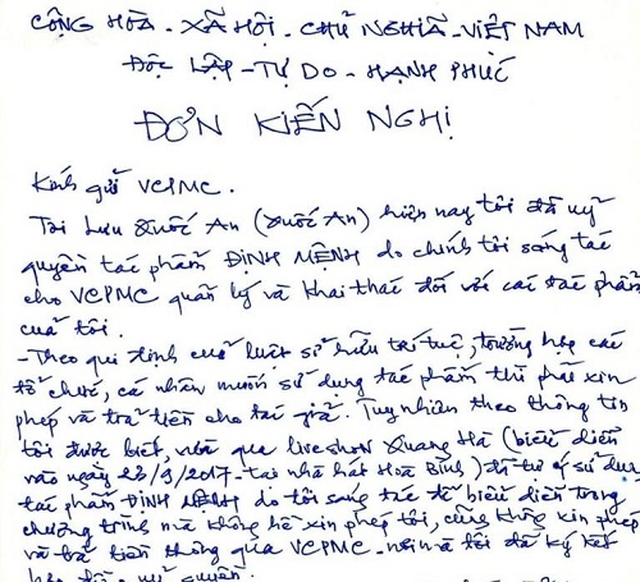 CỘNG HÒA - XÃ HỘI - CHỦ NGHĨA - VIỆT NAM
ĐỘC LẬP - TỰ DO - HẠNH PHÚC
ĐƠN KIẾN NGHỊ
Kính gửi VCPMC.
Tôi Lưu Quốc An (Quốc An) hiện nay tôi đã uỷ
quyền tác phẩm ĐỊNH MỆNH do chính tôi sáng tác
cho VCPMC quản lý và khai thác đối với các tác phẩm
của tôi.
- Theo qui định của luật sở hữu trí tuệ, trường hợp các
tổ chức, cá nhân muốn sử dụng tác phẩm thì phải xin
phép và trả tiền cho tác giả. Tuy nhiên theo thông tin
tôi được biết, vừa qua liveshow Quang Hà (biểu diễn
vào ngày 23/9/2017 - tại nhà hát Hoà Bình) đã tự ý sử dụng
tác phẩm ĐỊNH MỆNH do tôi sáng tác để biểu diễn trong
chương trình mà không hề xin phép tôi, cũng không xin phép
và trả tiền thông qua VCPMC - nơi mà tôi đã ký kết
quyền.